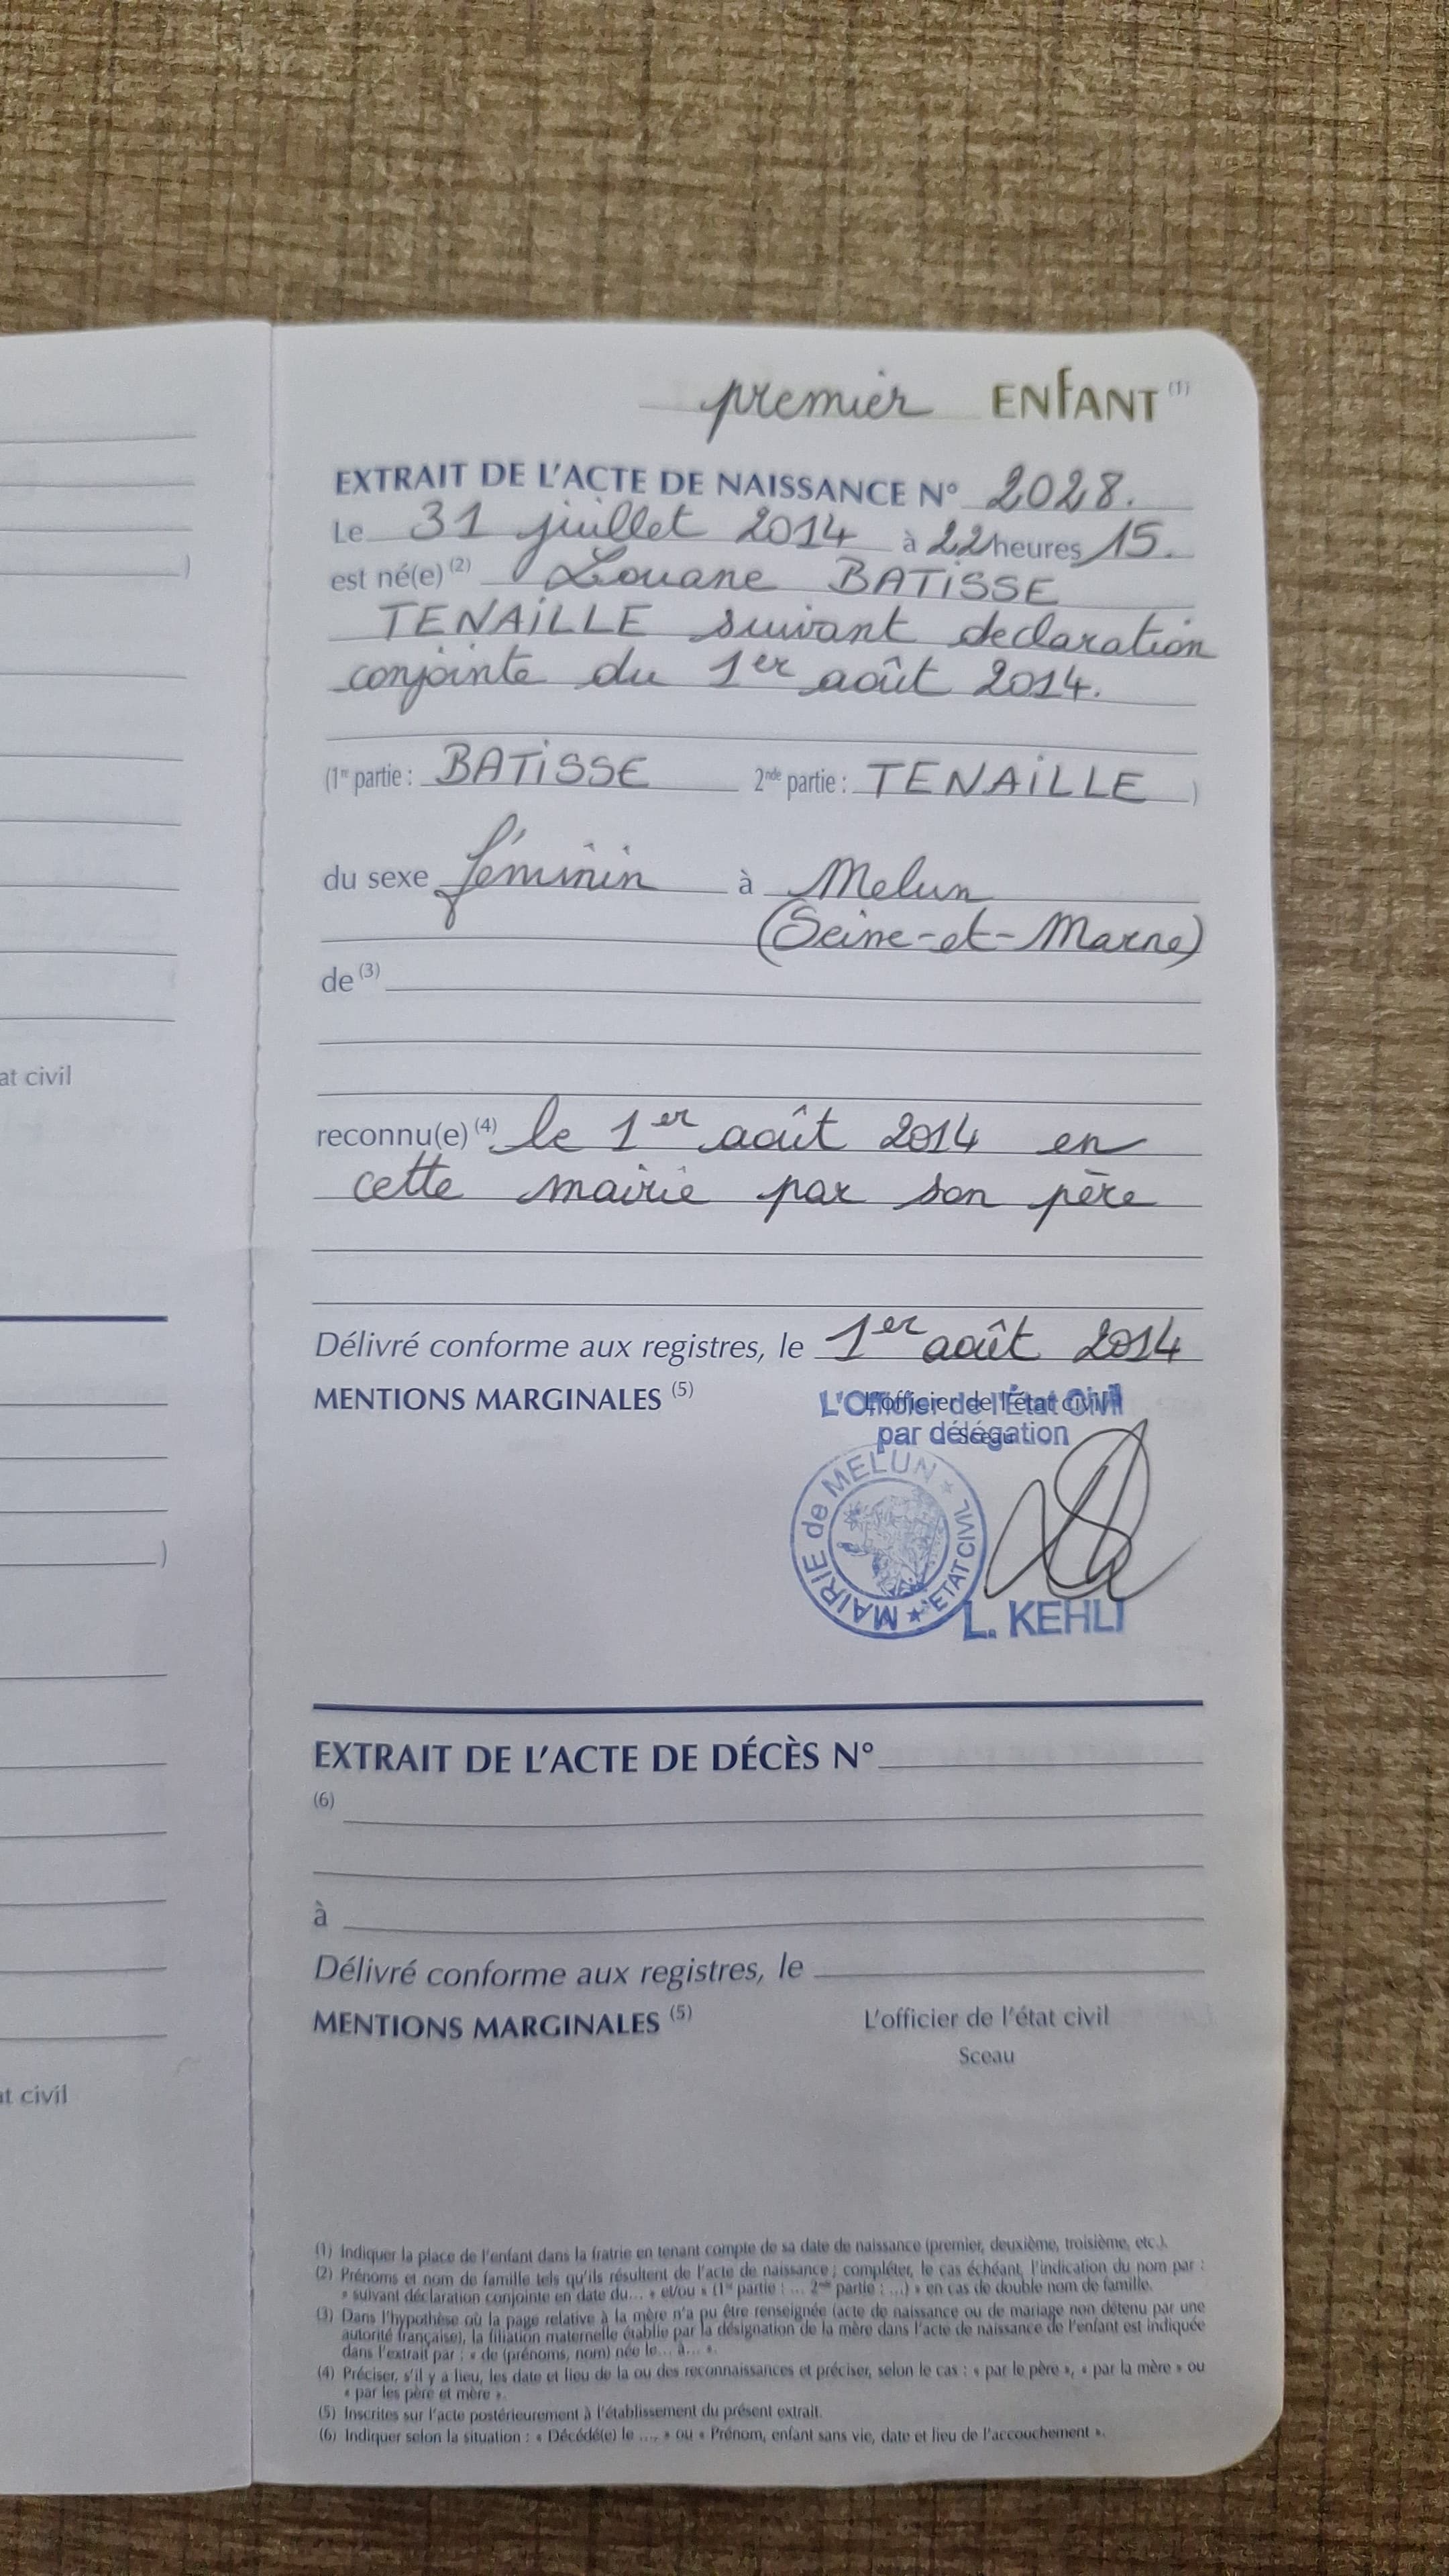 premier ENFANT (1)
EXTRAIT DE L'ACTE DE NAISSANCE N° 2028.
Le 31 juillet 2014 à 22heures 15.
est né(e) (2) Louane BATISSE
TENAILLE suivant declaration
conjointe du 1er août 2014.
(1re partie : BATISSE 2nde partie : TENAILLE )
du sexe féminin à Melun
(Seine-et-Marne)
de (3)
reconnu(e) (4) le 1er août 2014 en
cette mairie par son père
Délivré conforme aux registres, le 1er août 2014
MENTIONS MARGINALES (5) L'officier de l'état civil
L'Officier de l'État Civil
par délégation
Sceau
MAIRIE de MELUN ★ ETAT CIVIL ★
L. KEHLI
EXTRAIT DE L'ACTE DE DÉCÈS N°
(6)
à
Délivré conforme aux registres, le
MENTIONS MARGINALES (5) L'officier de l'état civil
Sceau
(1) Indiquer la place de l'enfant dans la fratrie en tenant compte de sa date de naissance (premier, deuxième, troisième, etc.).
(2) Prénoms et nom de famille tels qu'ils résultent de l'acte de naissance ; compléter, le cas échéant, l'indication du nom par :
« suivant déclaration conjointe en date du... » et/ou « (1re partie : ... 2nde partie : ...) » en cas de double nom de famille.
(3) Dans l'hypothèse où la page relative à la mère n'a pu être renseignée (acte de naissance ou de mariage non détenu par une
autorité française), la filiation maternelle établie par la désignation de la mère dans l'acte de naissance de l'enfant est indiquée
dans l'extrait par : « de (prénoms, nom) née le... à... ».
(4) Préciser, s'il y a lieu, les date et lieu de la ou des reconnaissances et préciser, selon le cas : « par le père », « par la mère » ou
« par les père et mère ».
(5) Inscrites sur l'acte postérieurement à l'établissement du présent extrait.
(6) Indiquer selon la situation : « Décédé(e) le .... » ou « Prénom, enfant sans vie, date et lieu de l'accouchement ».
)
at civil
)
at civil